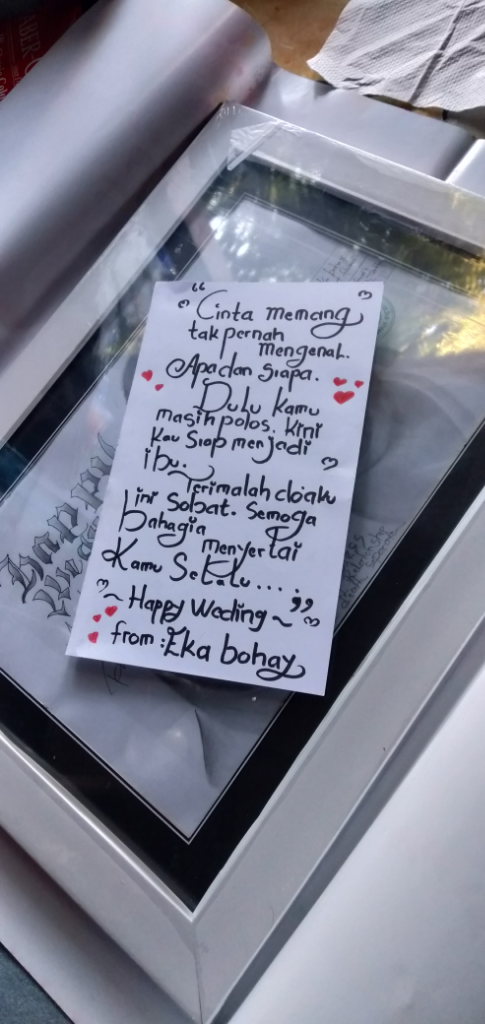 " Cinta memang
tak pernah
mengenal.
Apa dan siapa.
Dulu kamu
masih polos. kini
kau siap menjadi
ibu.
Terimalah doaku
ini Sobat. Semoga
bahagia
menyertai
Kamu Selalu... . "
~ Happy Wedding ~
from : Eka bohay
Happy